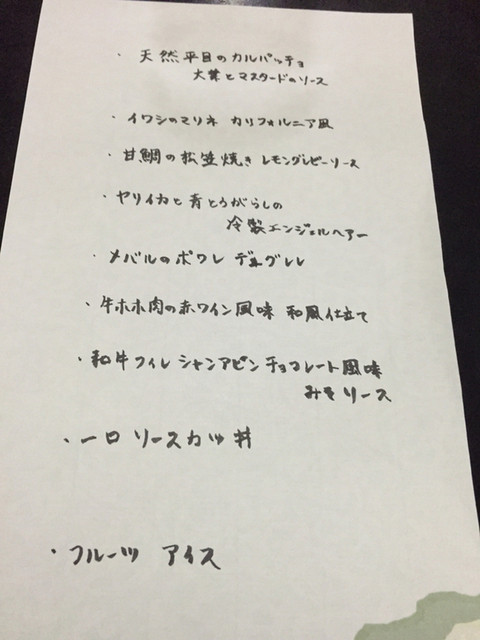 ・天然平目のカルパッチョ
大葉とマスタードのソース
・イワシのマリネ カリフォルニア風
・甘鯛の松笠焼き レモングレピーソース
・ヤリイカと青とうがらしの
冷製エンジェルヘアー
・メバルのポワレ デュグレレ
・牛ホホ肉の赤ワイン風味 和風仕立て
・和牛フィレ シャンアピン チョコレート風味
みそソース
・一口 ソースカツ丼
・フルーツ アイス